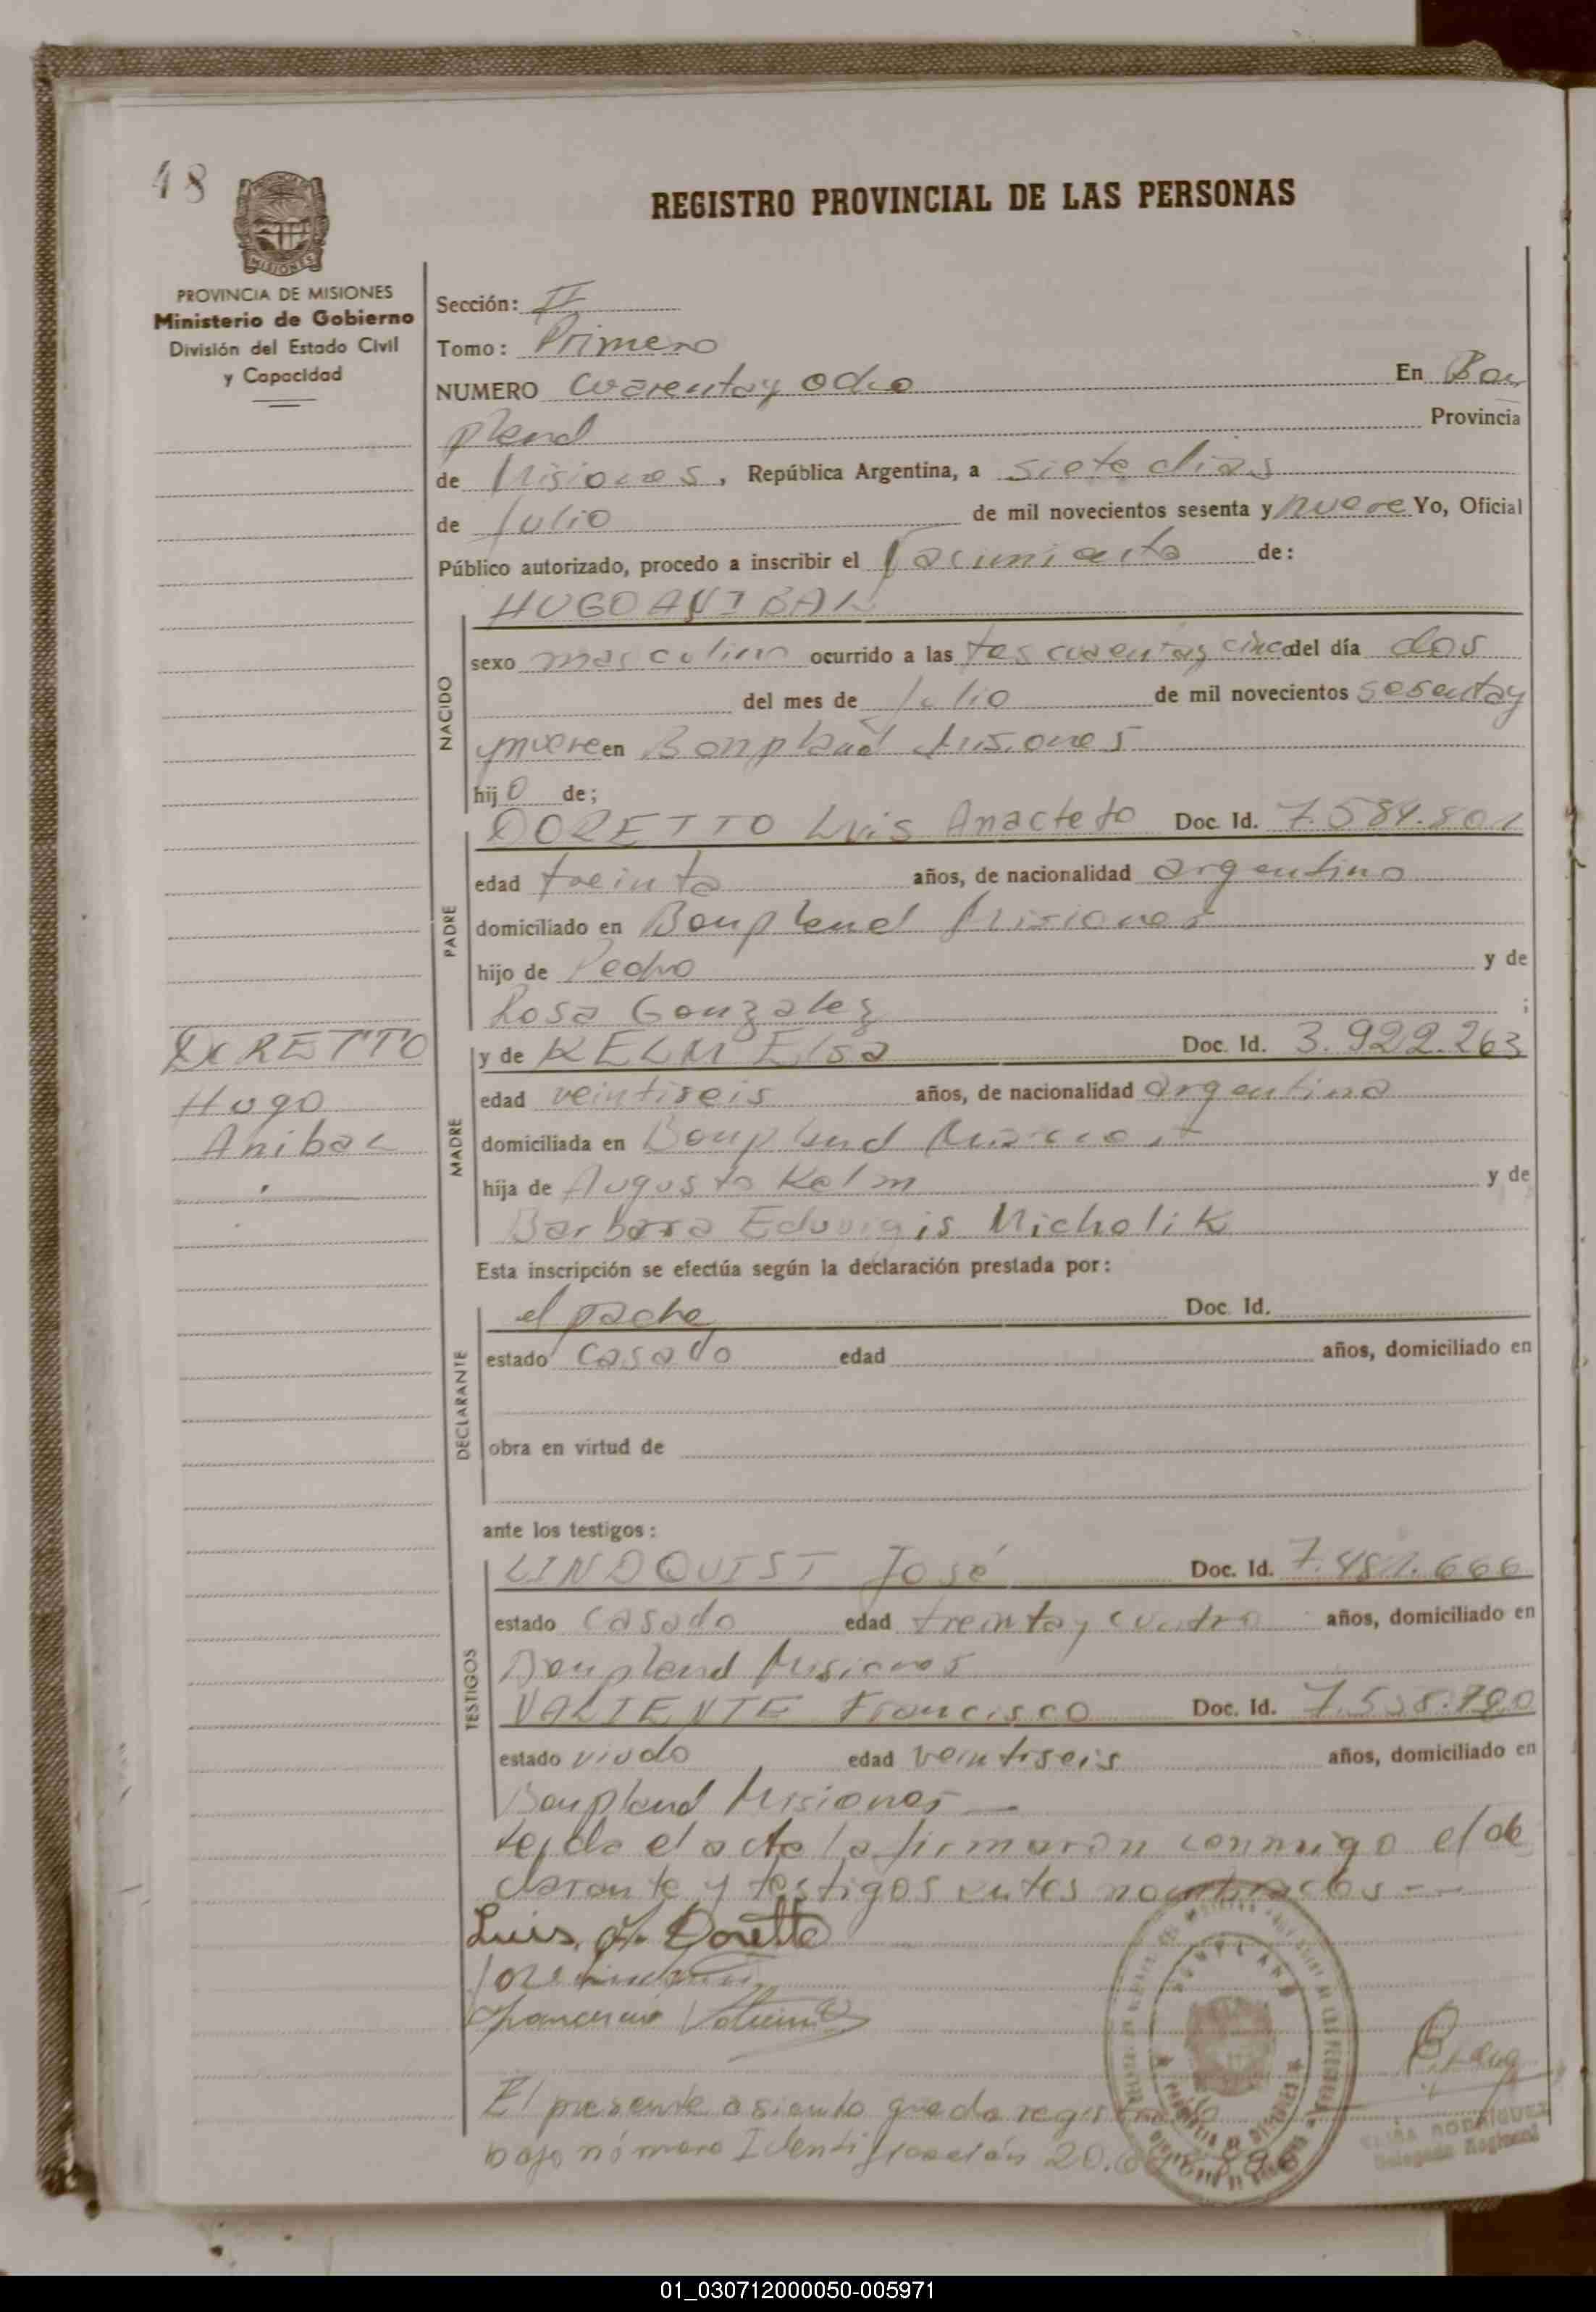 48
REGISTRO PROVINCIAL DE LAS PERSONAS
MISIONES
PROVINCIA DE MISIONES
Ministerio de Gobierno
División del Estado Civil
y Capacidad
Sección: II
Tomo: Primero
NUMERO cuarenta y ocho En Bon
pland Provincia
de Misiones, República Argentina, a siete dias
de Julio de mil novecientos sesenta y nueve Yo, Oficial
Público autorizado, procedo a inscribir el nacimiento de:
HUGO ANIBAL
NACIDO
sexo masculino ocurrido a las tres cuarenta y cinco del día dos
del mes de Julio de mil novecientos sesenta y
y nueve en Bonpland Misiones
hijo de;
PADRE
DORETTO Luis Anacleto Doc. Id. 7.584.801
edad treinta años, de nacionalidad argentino
domiciliado en Bonpland Misiones
hijo de Pedro y de
Rosa Gonzalez ;
DORETTO
Hugo
Anibal
MADRE
y de KELM Elsa Doc. Id. 3.922.263
edad veintiseis años, de nacionalidad argentina
domiciliada en Bonpland Misiones
hija de Augusto Kelm y de
Barbara Eduvigis Micholik
Esta inscripción se efectúa según la declaración prestada por:
DECLARANTE
el padre Doc. Id.
estado casado edad años, domiciliado en
obra en virtud de
ante los testigos:
TESTIGOS
LINDQUIST José Doc. Id.
estado casado edad treinta y cuatro años, domiciliado en
Bonpland Misiones
VALIENTE Francisco Doc. Id.
estado viudo edad veintiseis años, domiciliado en
Bonpland Misiones —
Leida el acta la firmaron conmigo el de
clarante y testigos antes nombrados --
Luis A. Doretto
Jose Lindquist
Francisco Valiente
BONPLAND
PROVINCIA DE MISIONES
El presente asiento queda registrado
bajo número Identificación 20.
RODRIGUEZ
Delegada Regional
01_030712000050-005971